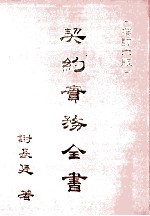 契約實務全書
謝長廷 著